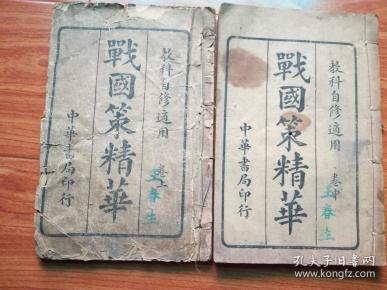 教科自修適用
卷上
戰國策精華
中華書局印行
春生
教科自修適用
卷中
戰國策精華
中華書局印行
春生
孔夫子旧书网